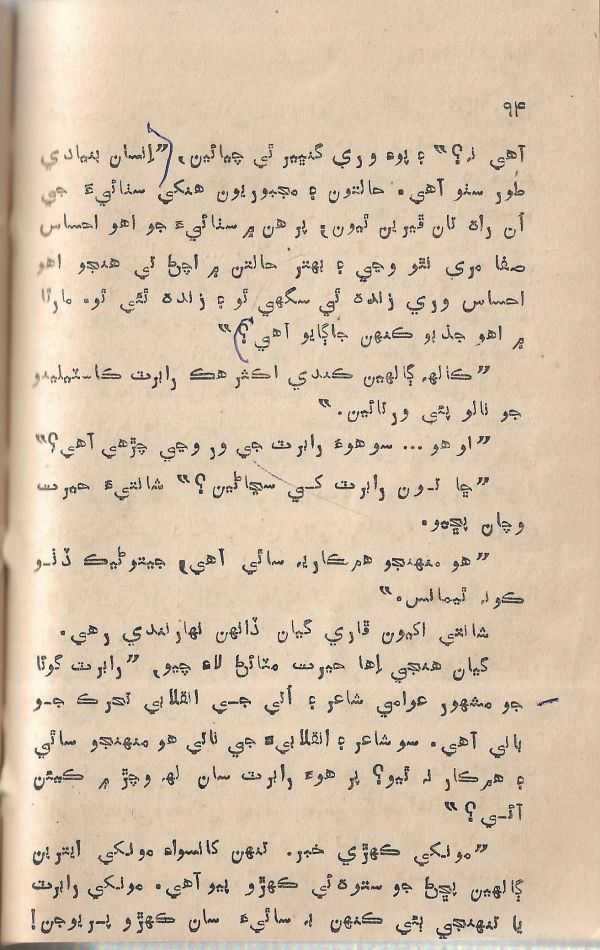 ۹۴
آهي نہ؟“ ۽ پوءِ وري گنڀير ٿي چيائين، ”انسان بنيادي
طور سٺو آهي. حالتون ۽ مجبوريون هنکي سٺائيءَ جي
اُن راھ تان ڦيرين ٿيون، پر هن ۾ سٺائيءَ جو اهو احساس
صفا مري نٿو وڃي ۽ بهتر حالتن ۾ اچڻ تي هنجو اهو
احساس وري زندہ ٿي سگهي ٿو ۽ زندہ ٿئي ٿو. مارٿا
۾ اهو جذبو ڪنهن جاڳايو آهي؟“
”ڪالهہ ڳالهين ڪندي اڪثر هڪ رابرٽ ڪاسٽيلينو
جو نالو پئي ورتائين.“
”او هو ... سو هوءَ رابرٽ جي ور وڃي چڙهي آهي؟“
”ڇا تون رابرٽ کي سڃاڻين؟“ شانتيءَ حيرت
وچان پڇيو.
”هو منهنجو همڪار بہ ساٿي آهي، جيتوڻيڪ ڏٺو
ڪونہ ٿيمانس.“
شانتي اکيون ڦاڙي گيان ڏانهن نهارندي رهي.
گيان هنجي اِها حيرت مٽائڻ لاءِ چيو، ”رابرٽ گوئا
جو مشهور عوامي شاعر ۽ اُتي جي انقلابي تحرڪ جو
باني آهي. سو شاعر ۽ انقلابيءَ جي ناتي هو منهنجو ساٿي
۽ همڪار نہ ٿيو؟ پر هوءَ رابرٽ سان لهہ وچڙ ۾ ڪيئن
آئي؟“
”مونکي ڪهڙي خبر. تنهن کانسواءِ مونکي ايترين
ڳالهين پڇڻ جو ستوھ ئي ڪهڙو پيو آهي. مونکي رابرٽ
يا تنهنجي ٻئي ڪنهن بہ ساٿيءَ سان ڪهڙو پريوجن!